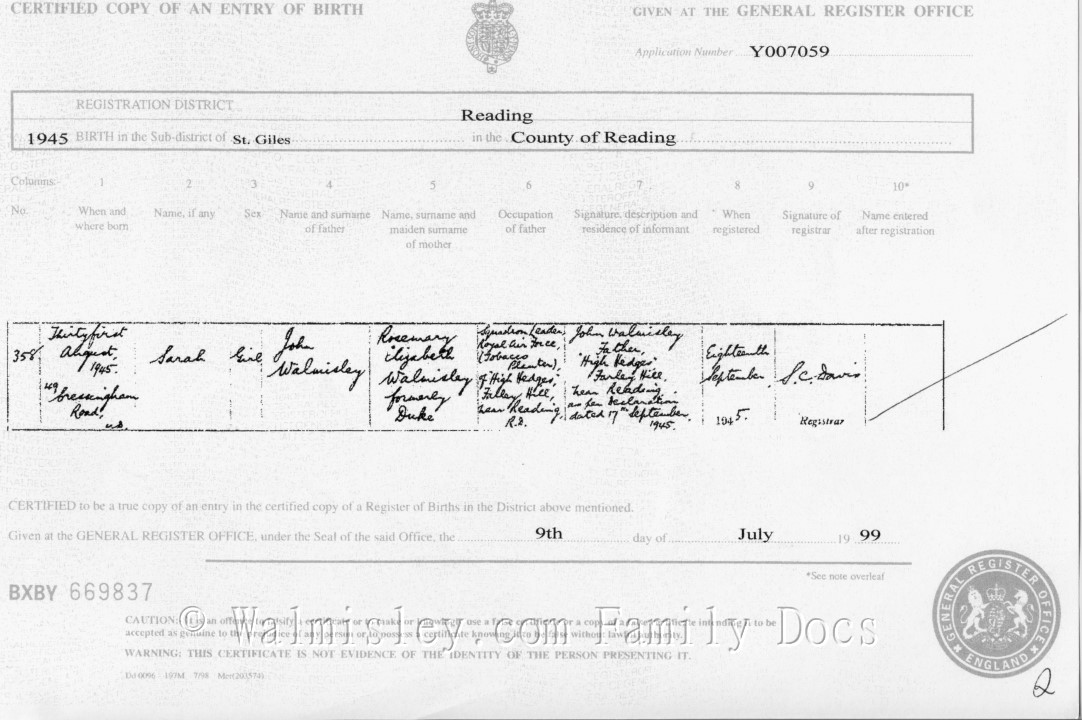 CERTIFIED COPY OF AN ENTRY OF BIRTH
GIVEN AT THE GENERAL REGISTER OFFICE
Application Number Y007059
REGISTRATION DISTRICT
Reading
1945 BIRTH in the Sub-district of St. Giles in the County of Reading
Columns:- 1 2 3 4 5 6 7 8 9 10*
No. When and where born
Name, if any
Sex
Name and surname of father
Name, surname and maiden surname of mother
Occupation of father
Signature, description and residence of informant
When registered
Signature of registrar
Name entered after registration
358
Thirty first
August,
1945.
49
Cressingham
Road,
u.d.
Sarah
Girl
John
Walmisley
Rosemary
Elizabeth
Walmisley
formerly
Duke
Squadron Leader,
Royal Air Force,
(Tobacco
Planter),
of "High Hedges,"
Farley Hill,
near Reading,
R.D.
John Walmisley
Father,
"High Hedges"
Farley Hill
near Reading
as per Declaration
dated 17th September
1945.
Eighteenth
September
1945.
S.C. Davis
Registrar
CERTIFIED to be a true copy of an entry in the certified copy of a Register of Births in the District above mentioned.
Given at the GENERAL REGISTER OFFICE, under the Seal of the said Office, the 9th day of July 19 99
*See note overleaf
BXBY 669837
© Walmisley.com Family Docs
CAUTION: It is an offence to falsify a certificate or to
accepted as genuine to the prejudice of any person or to possess a certificate knowing it to be false without lawful authority.
WARNING: THIS CERTIFICATE IS NOT EVIDENCE OF THE IDENTITY OF THE PERSON PRESENTING IT.
GENERAL REGISTER OFFICE
ENGLAND
2